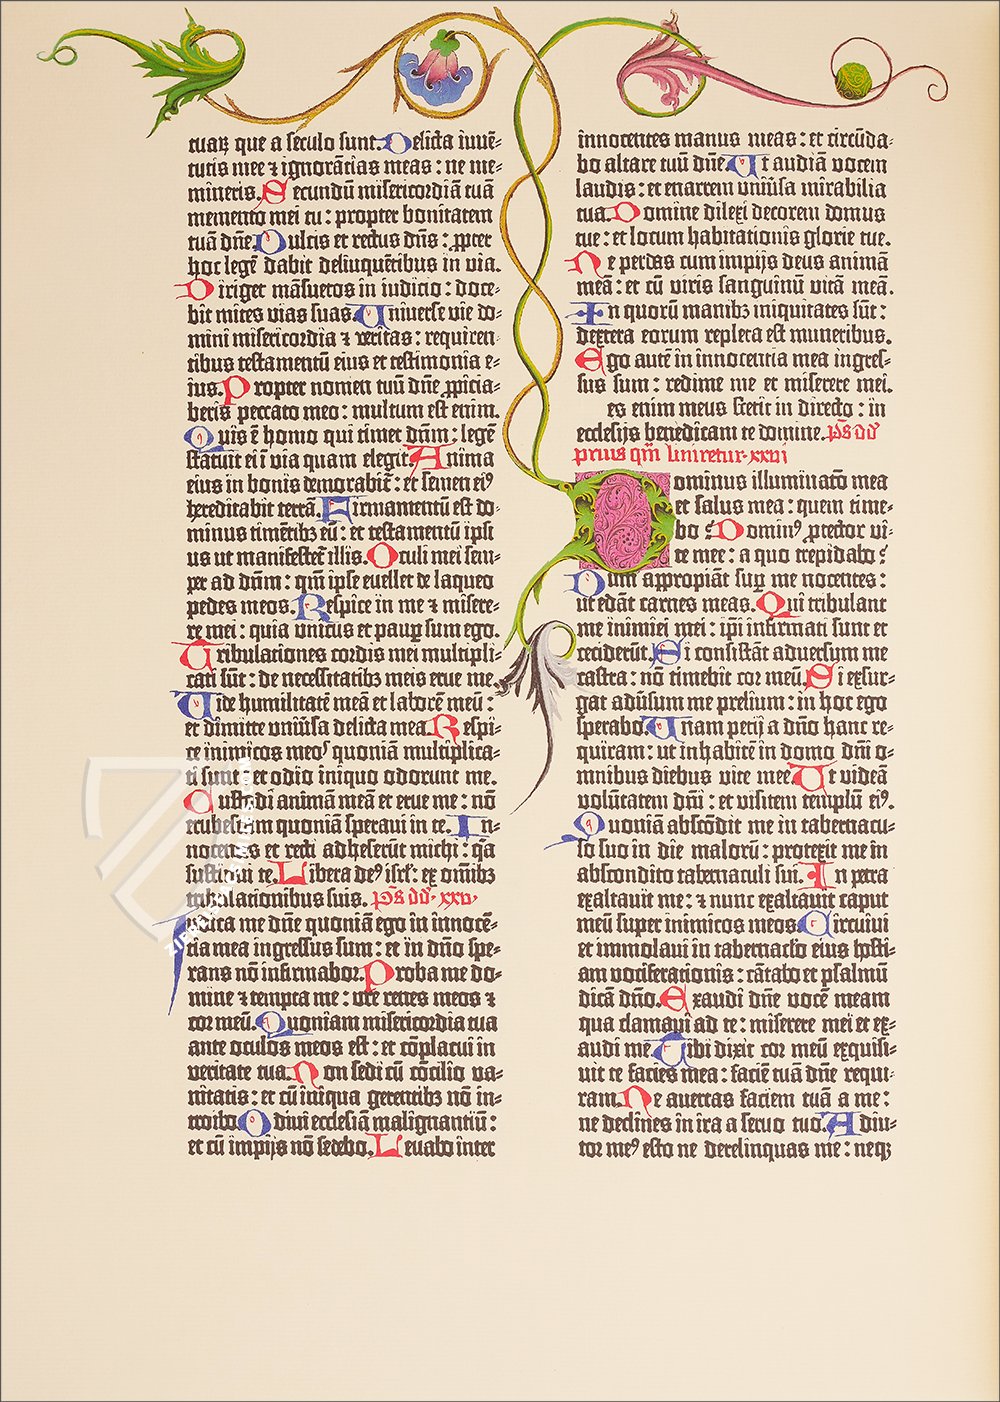 tuaꝝ que a seculo sunt. Delicta iuuē-
tutis mee ⁊ ignorātias meas : ne me-
mineris. Secundū misericordiā tuā
memento mei tu : propter bonitatem
tuā dn̄e. Dulcis et rectus dn̄s : ꝓpter
hoc legē dabit delinquētibus in via.
Diriget māsuetos in iudicio : doce-
bit mites vias suas. Uniuerse vie do-
mini misericordia ⁊ veritas : requiren
tibus testamentū eius et testimonia e-
ius. Propter nomen tuū dn̄e ꝓpicia-
beris peccato meo : multum est enim.
Quis ē homo qui timet dn̄m : legē
statuit ei ī via quam elegit. Anima
eius in bonis demorabit᷑ : et semen ei⁹
hereditabit terrā. Firmamentū est do-
minus timētibꝫ eū : et testamentū ipsi
us ut manifestet᷑ illis. Oculi mei sem-
per ad dn̄m : qm̄ ipse euellet de laqueo
pedes meos. Respice in me ⁊ misere-
re mei : quia vnicus et pauꝑ sum ego.
Tribulationes cordis mei multipli-
cati sūt : de necessitatibꝫ meis erue me.
Uide humilitatē meā et laborē meū :
et dimitte vniūsa delicta mea. Respi-
ce inimicos meos quoniā multiplica-
ti sunt : et odio iniquo odorunt me.
Custodi animā meā et erue me : nō
erubescam quoniā speraui in te. In-
nocentes et recti adheserūt michi : q̄a
sustinui te. Libera de⁹ isrl̄ : ex om̄ibꝫ
tribulationibus suis. p̄s dd̄. xxv.
Iudica me dn̄e quoniā ego in innocē-
tia mea ingressus sum : et in dn̄o spe-
rans nō infirmabor. Proba me do-
mine ⁊ tempta me : vre renes meos ⁊
cor meū. Quoniam misericordia tua
ante oculos meos est : et cōplacui in
veritate tua. Non sedi cū cōcilio va-
nitatis : et cū iniqua gerentibꝫ nō in-
troibo. Odiui ecclesiam malignantiū :
et cū impijs nō sedebo. Leuabo inter
innocentes manus meas : et circūda-
bo altare tuū dn̄e. Ut audiā vocem
laudis : et enarrem vniūsa mirabilia
tua. Domine dilexi decorem domus
tue : et locum habitationis glorie tue.
Ne perdas cum impijs deus animā
meā : et cū viris sanguinū vitā meā.
In quorū manibꝫ iniquitates sūt :
dextera eorum repleta est muneribus.
Ego autē in innocentia mea ingres-
sus sum : redime me et miserere mei.
es enim meus stetit in directo : in
ecclesijs benedicam te domine. p̄s dd̄
prius qm̄ liniretur. xxvi
Dominus illuminatō mea
et salus mea : quem time-
bo? Domin⁹ ꝓtector vi-
te mee : a quo trepidabo?
Dum appropiāt suꝑ me nocentes :
ut edāt carnes meas. Qui tribulant
me inimici mei : ip̄i infirmati sunt et
ceciderūt. Si consistāt aduersum me
castra : nō timebit cor meū. Si exsur-
gat adūsum me prelium : in hoc ego
sperabo. Unam petij a dn̄o hanc re-
quiram : ut inhabitē in domo dn̄i o-
mnibus diebus vite mee. Ut videā
volūtatem dn̄i : et visitem templū ei⁹.
Quoniā abscōdit me in tabernacu-
lo suo in die malorū : protexit me in
abscondito tabernaculi sui. In petra
exaltauit me : ⁊ nunc exaltauit caput
meū super inimicos meos. Circuiui
et immolaui in tabernac̄lo eius hosti-
am vociferationis : cātabo et psalmū
dicā dn̄o. Exaudi dn̄e vocē meam
qua clamaui ad te : miserere mei et ex-
audi me. Tibi dixit cor meū exquisi-
uit te facies mea : faciē tuā dn̄e requi-
ram. Ne auertas faciem tuā a me :
ne declines in ira a seruo tuo. Adiu-
tor me⁹ esto ne derelinquas me : neqꝫ